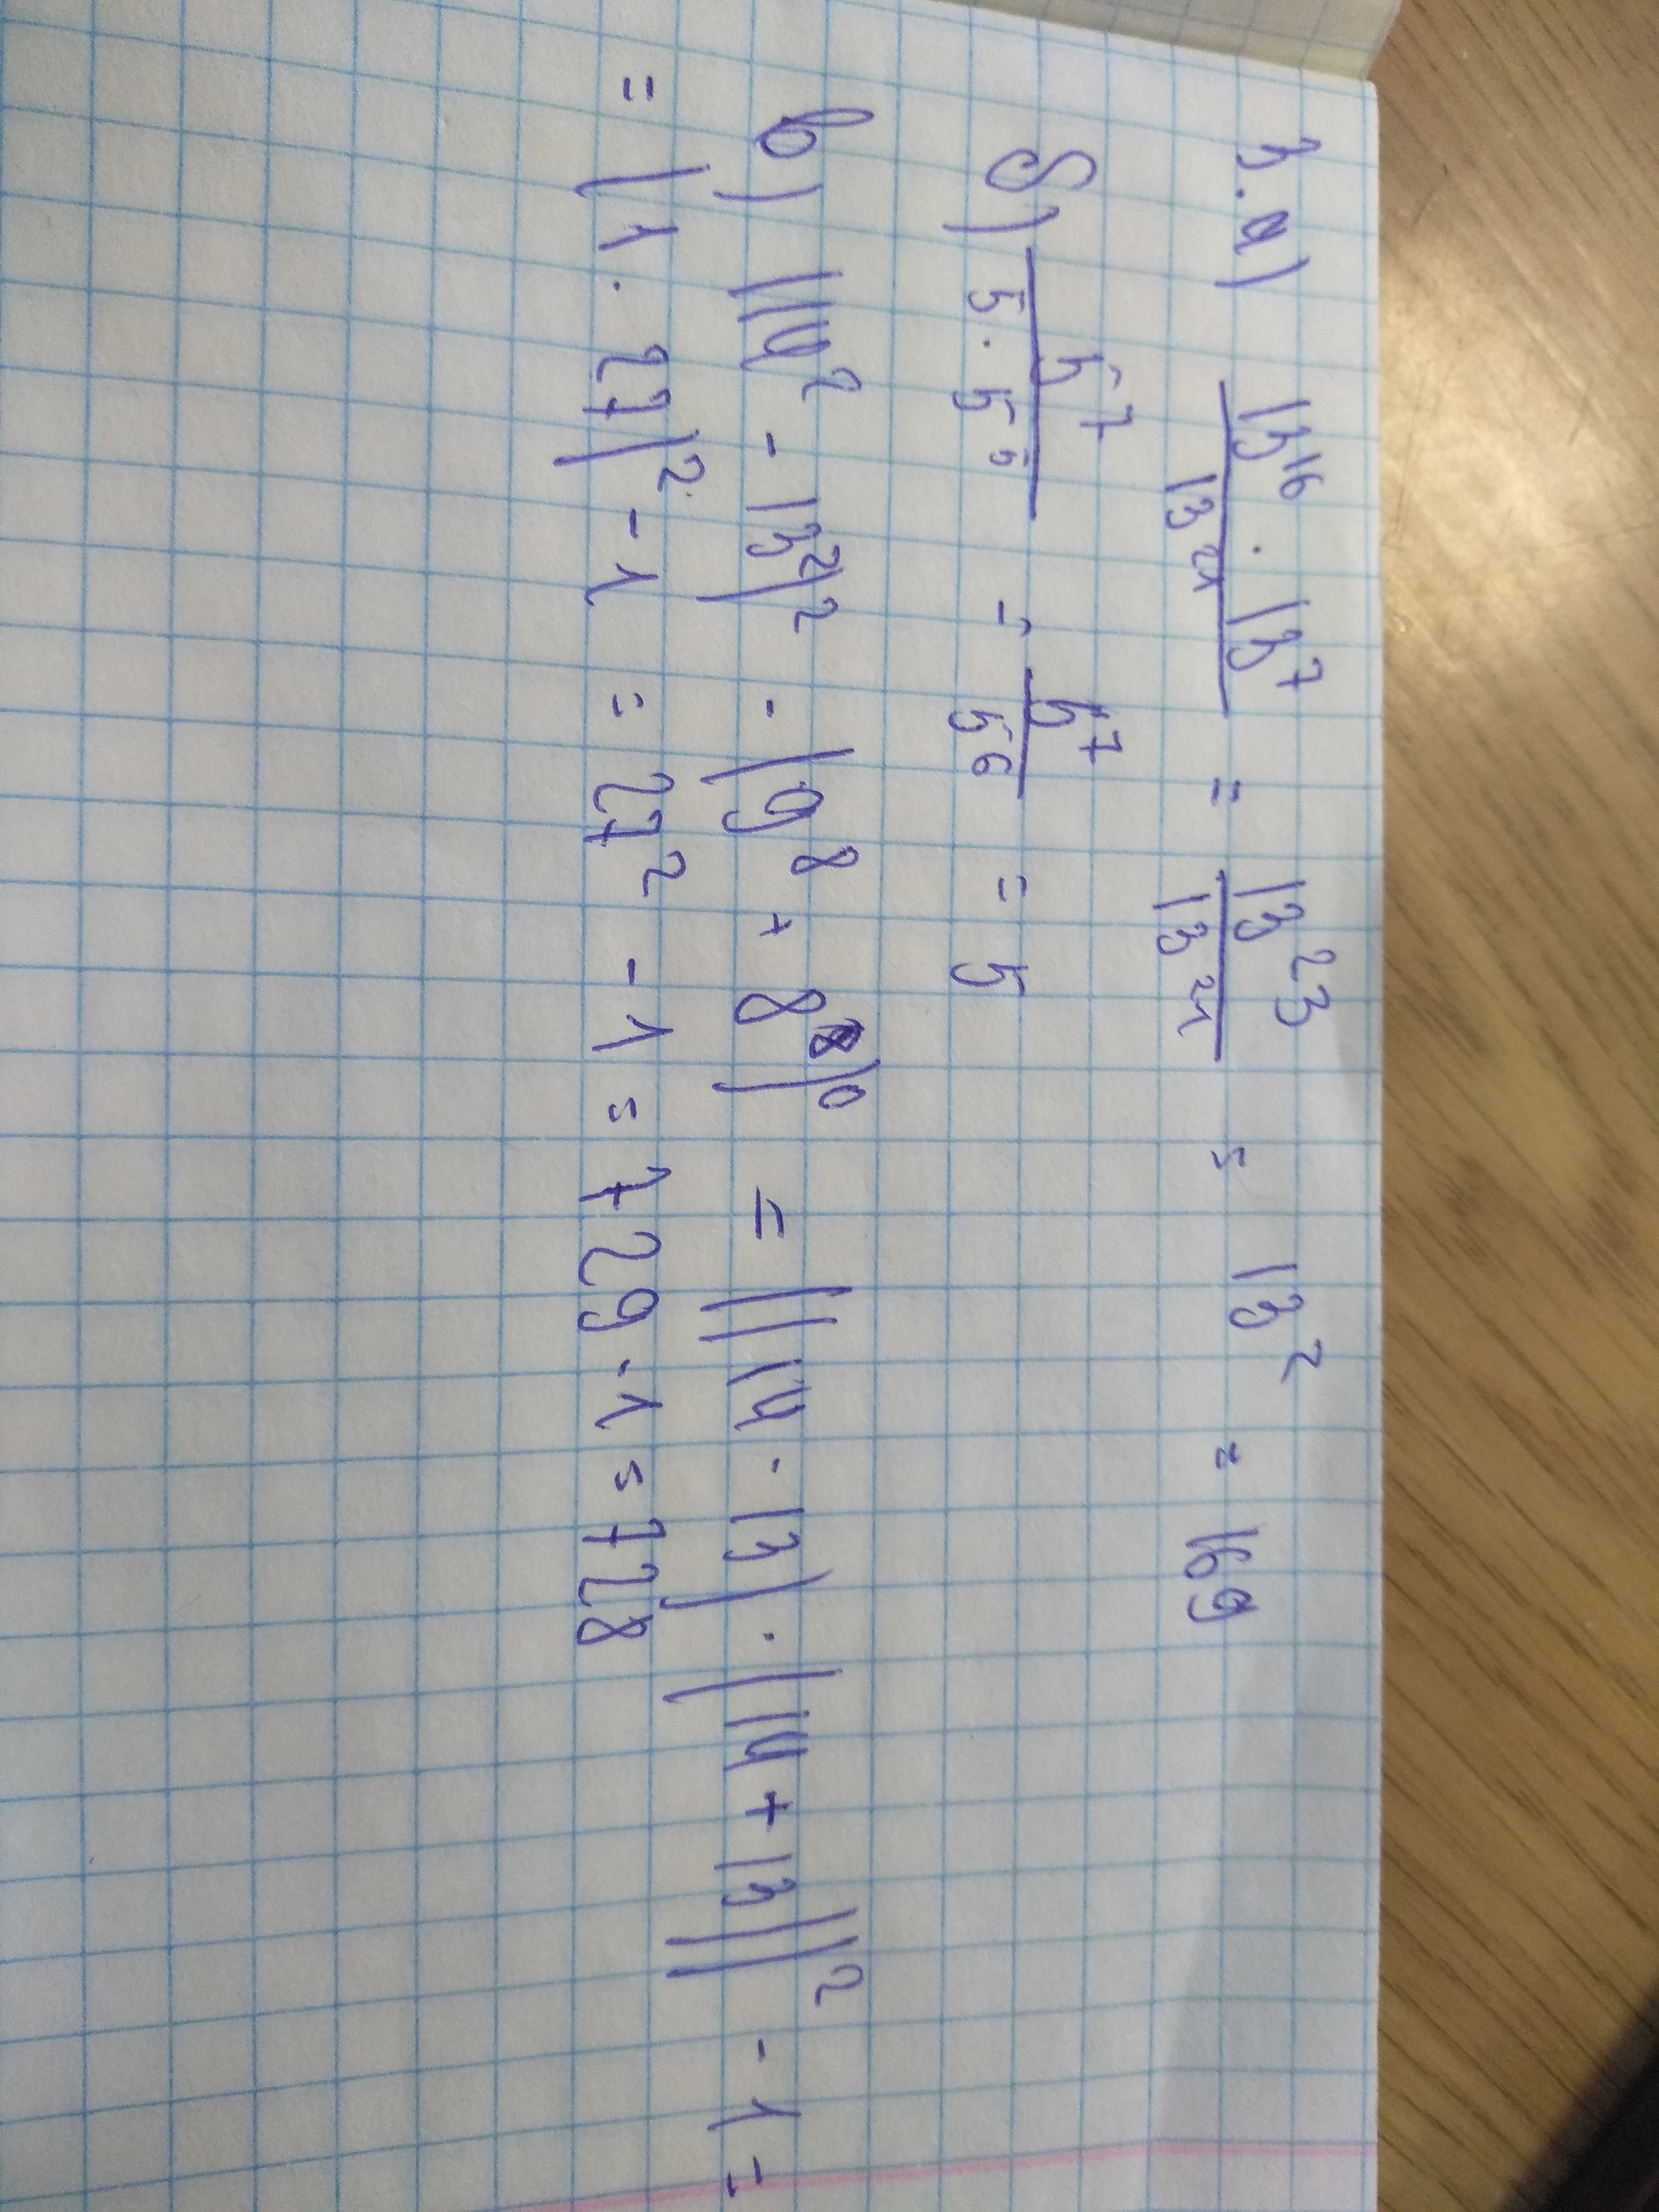 3. а) 13¹⁶ · 13⁷ / 13²¹ = 13²³ / 13²¹ = 13² = 169
б) 5⁷ / 5 · 5⁵ = 5⁷ / 5⁶ = 5
в) ((14² - 13²)² - (9⁸ + 8⁸)⁰ = ((14 - 13) · (14 + 13))² - 1 =
= (1 · 27)² - 1 = 27² - 1 = 729 - 1 = 728